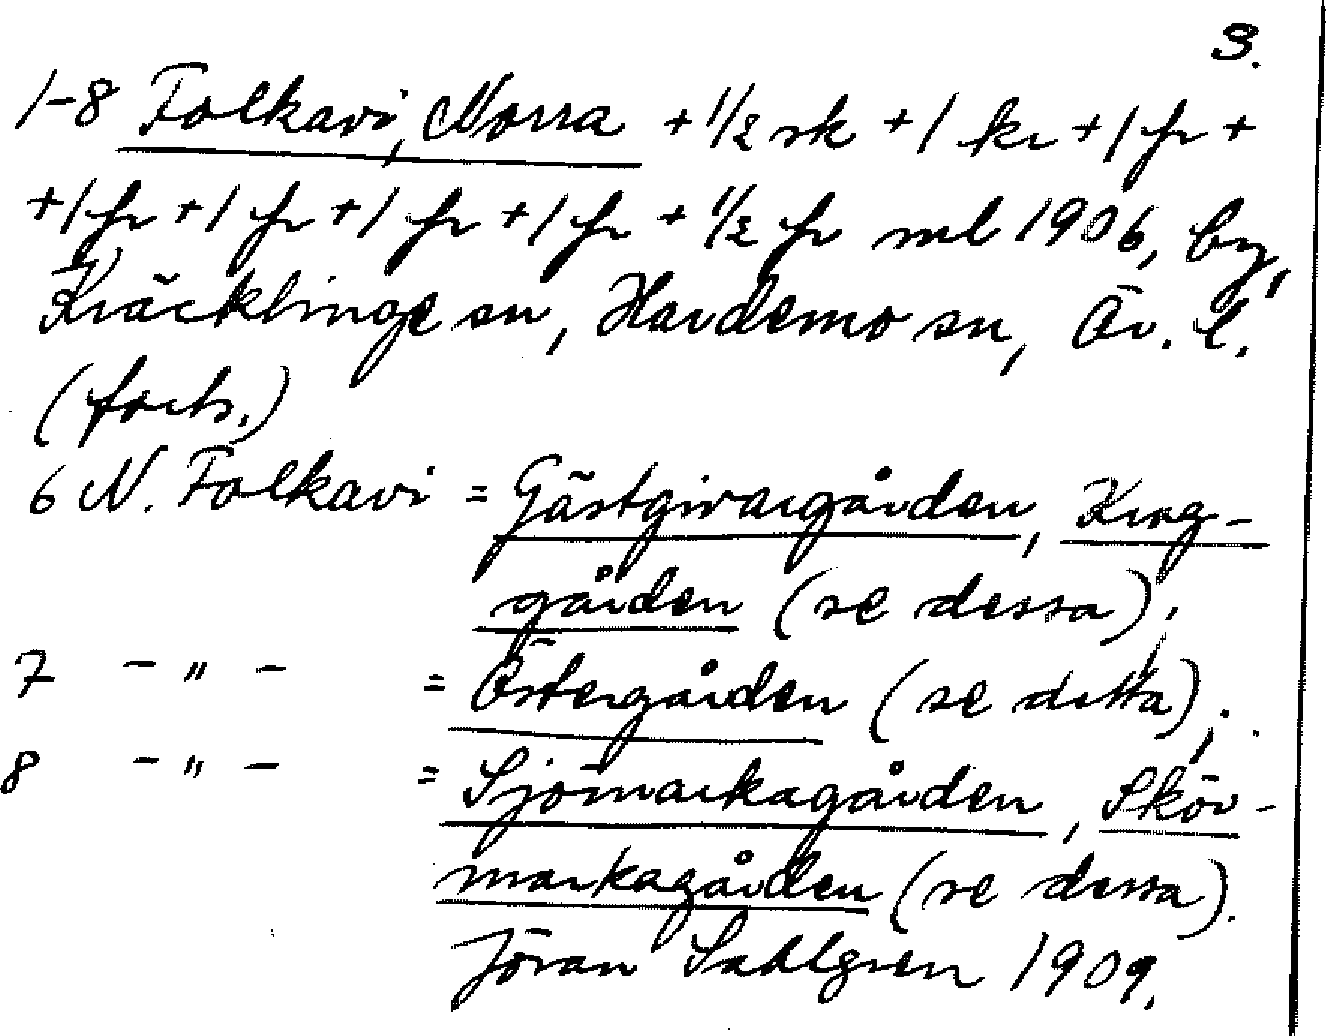 3.
1-8 Folkavi, Norra + 1/2 sk + 1 kr + 1 fr +
+ 1 fr + 1 fr + 1 fr + 1 fr + 1/2 fr ml 1906, by,
Kräcklinge sn, Hardemo sn, Ör. l.
(forts.)
6 N. Folkavi = Gästgivargården, Krog-
gården (se dessa);
7 - " - = Östergården (se detta);
8 - " - = Sjömarkagården, Skör-
markagården (se dessa).
Jöran Sahlgren 1909.